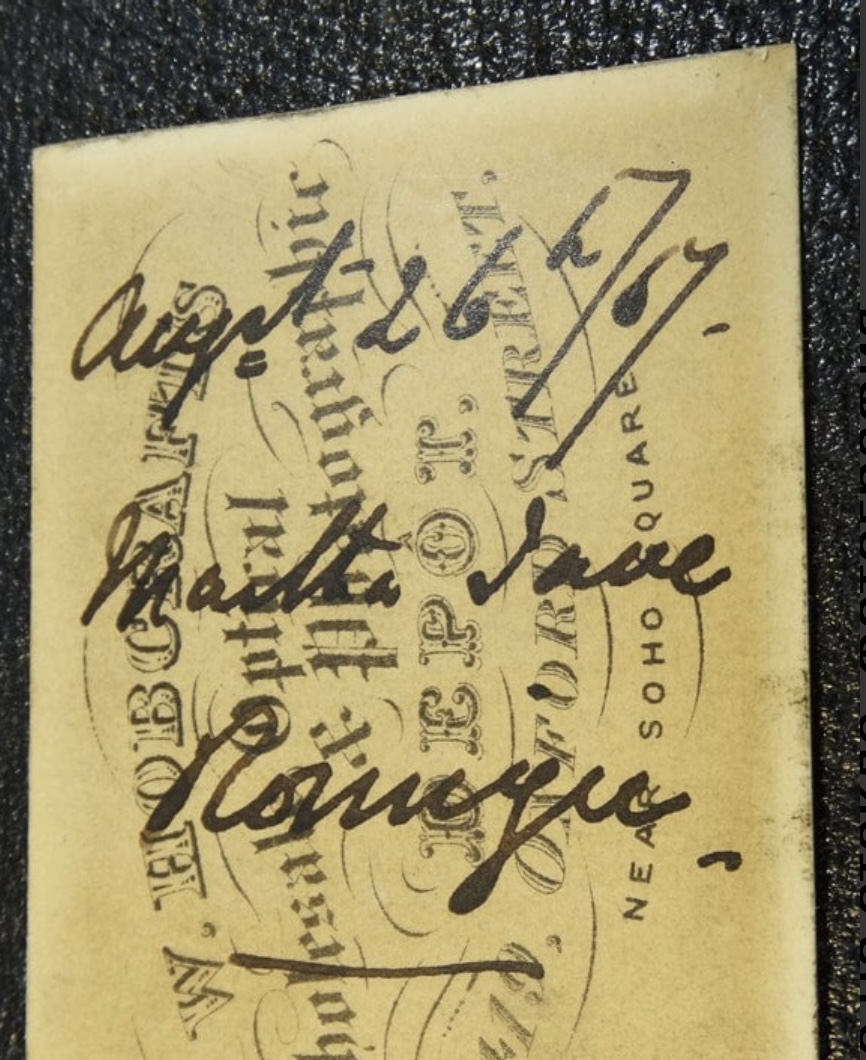 Augst 26th/67.
Martha Jane
Romyee
W. HOBCRAFT'S
Wholesale Optical
& Photographic
DEPOT.
419, OXFORD STREET.
NEAR SOHO SQUARE